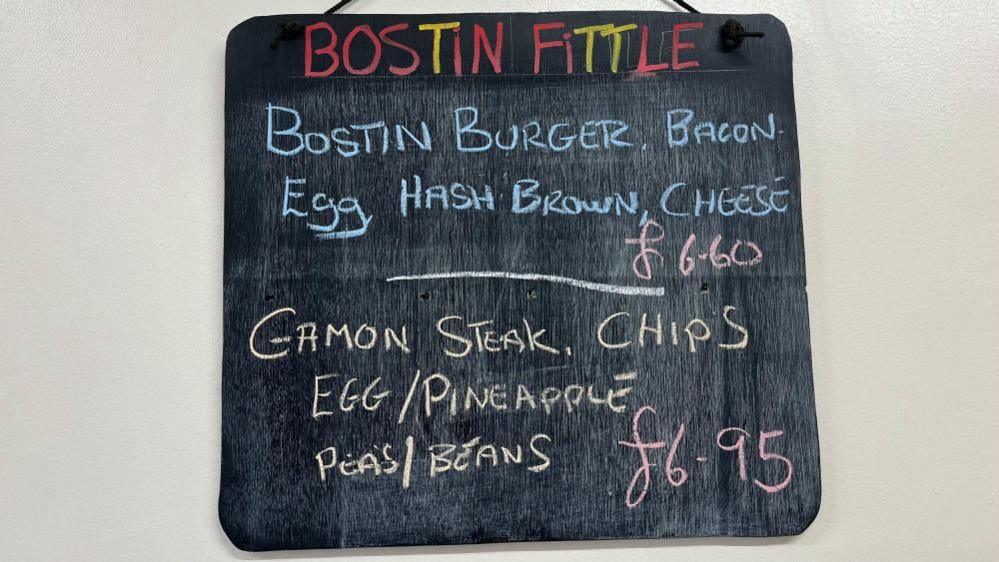 BOSTIN FiTTLE
BOSTIN BURGER. BACON.
Egg HASH BROWN, CHEESE
£6-60
GAMON STEAK. CHIPS
EGG/PINEAPPLE
PEAS/BEANS
£6-95